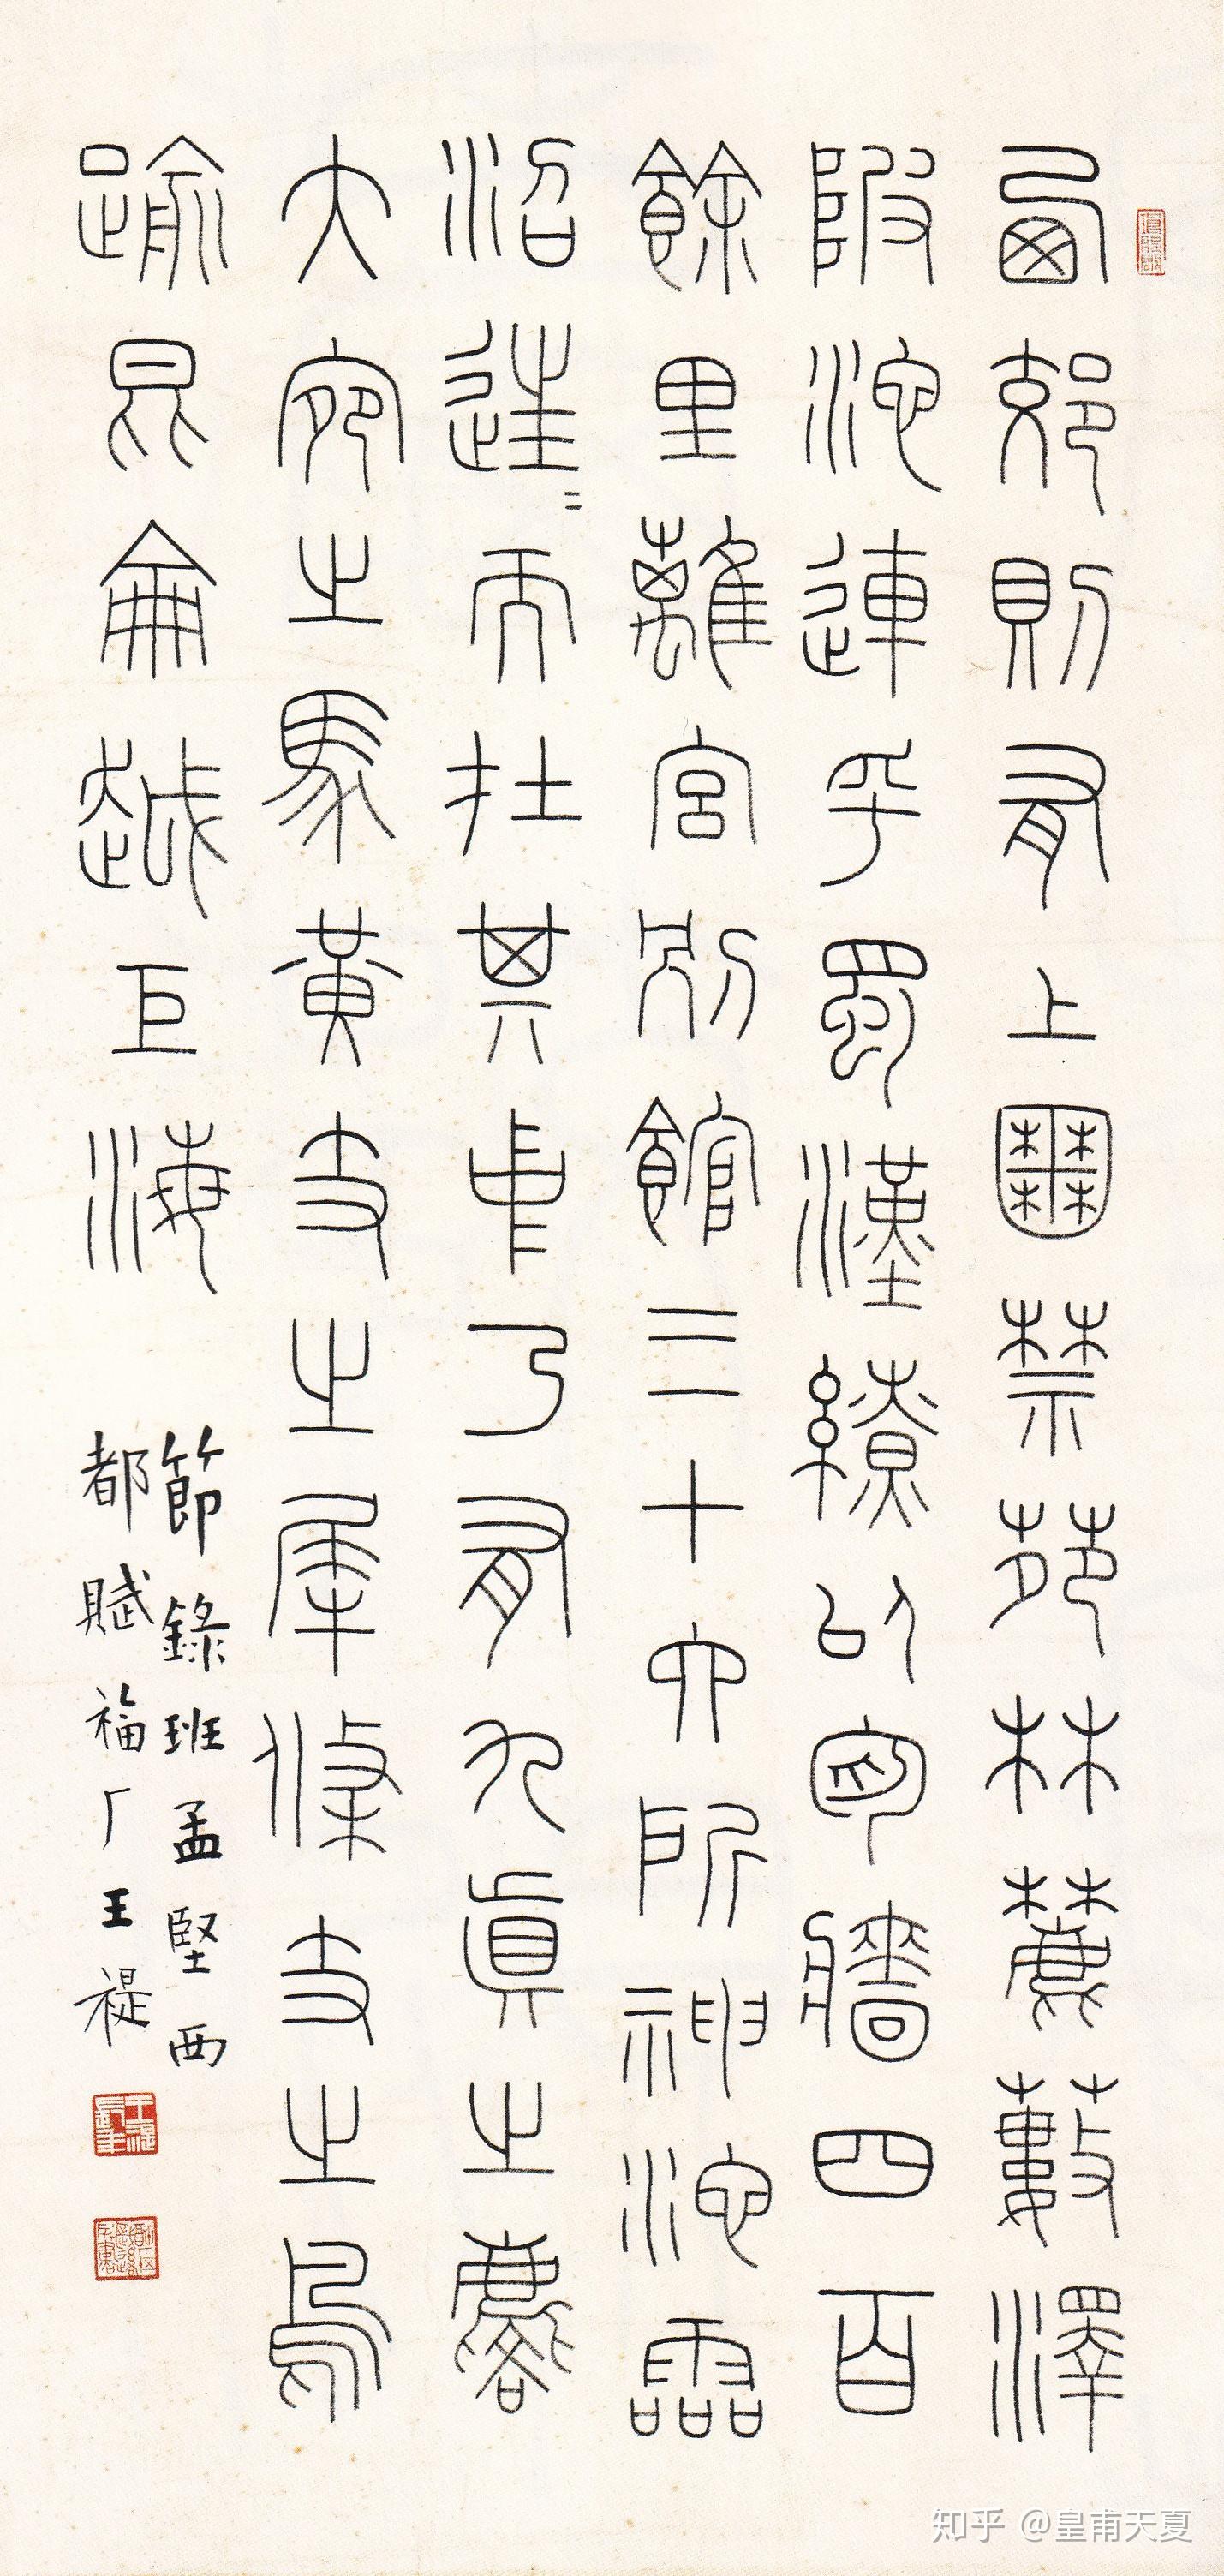 西郊則有上囿禁苑林麓藪澤
陂池連乎蜀漢繚以周牆四百
餘里離宮別館三十六所神池靈
沼往〻而在其中乃有九眞之麐
大宛之馬黃支之犀條支之鳥
踰昆侖越巨海
節錄班孟堅西
都賦福厂王禔
知乎 @皇甫天夏